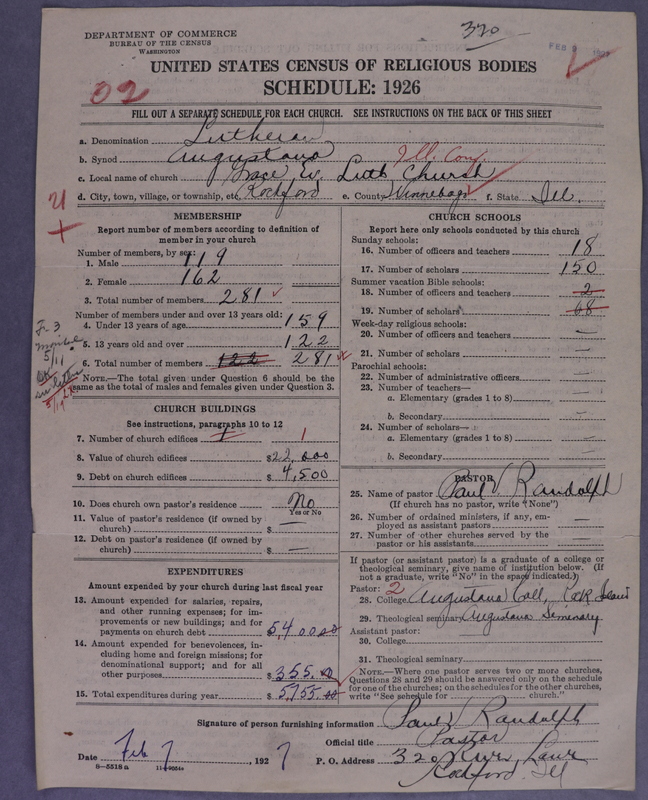 320
DEPARTMENT OF COMMERCE
BUREAU OF THE CENSUS
WASHINGTON
FEB
UNITED STATES CENSUS OF RELIGIOUS BODIES
SCHEDULE: 1926
02
FILL OUT A SEPARATE SCHEDULE FOR EACH CHURCH. SEE INSTRUCTIONS ON THE BACK OF THIS SHEET
a. Denomination Lutheran
b. Synod Augustana Ill. Con.
c. Local name of church Grace Ev. Luth Church
d. City, town, village, or township, etc. Rockford e. County Winnebago f. State Ill.
MEMBERSHIP
Report number of members according to definition of
member in your church
Number of members, by sex:
1. Male 119
2. Female 162
3. Total number of members 281
Number of members under and over 13 years old:
4. Under 13 years of age 159
5. 13 years old and over 122
6. Total number of members 122 281
NOTE.—The total given under Question 6 should be the
same as the total of males and females given under Question 3.
CHURCH BUILDINGS
See instructions, paragraphs 10 to 12
7. Number of church edifices 1 1
8. Value of church edifices $22,000
9. Debt on church edifices $4,500
10. Does church own pastor's residence No
Yes or No
11. Value of pastor's residence (if owned by
church) $ —
12. Debt on pastor's residence (if owned by
church) $ —
EXPENDITURES
Amount expended by your church during last fiscal year
13. Amount expended for salaries, repairs,
and other running expenses; for im-
provements or new buildings; and for
payments on church debt $5,400.00
14. Amount expended for benevolences, in-
cluding home and foreign missions; for
denominational support; and for all
other purposes $355.00
15. Total expenditures during year $5755.00
CHURCH SCHOOLS
Report here only schools conducted by this church
Sunday schools:
16. Number of officers and teachers 18
17. Number of scholars 150
Summer vacation Bible schools:
18. Number of officers and teachers 2
19. Number of scholars 68
Week-day religious schools:
20. Number of officers and teachers —
21. Number of scholars —
Parochial schools:
22. Number of administrative officers —
23. Number of teachers—
a. Elementary (grades 1 to 8) —
b. Secondary —
24. Number of scholars—
a. Elementary (grades 1 to 8) —
b. Secondary —
PASTOR
25. Name of pastor Paul V. Randolph
(If church has no pastor, write "None")
26. Number of ordained ministers, if any, em-
ployed as assistant pastors —
27. Number of other churches served by the
pastor or his assistants —
If pastor (or assistant pastor) is a graduate of a college or
theological seminary, give name of institution below. (If
not a graduate, write "No" in the space indicated.)
Pastor: 2
28. College Augustana Coll., Rock Island
29. Theological seminary Augustana Seminary
Assistant pastor:
30. College
31. Theological seminary
NOTE.—Where one pastor serves two or more churches,
Questions 28 and 29 should be answered only on the schedule
for one of the churches; on the schedules for the other churches,
write "See schedule for church."
Signature of person furnishing information Paul V Randolph
Official title Pastor
Date Feb 7, 1927 P. O. Address 320
Rockford Ill
8—5518 a 11—9054a